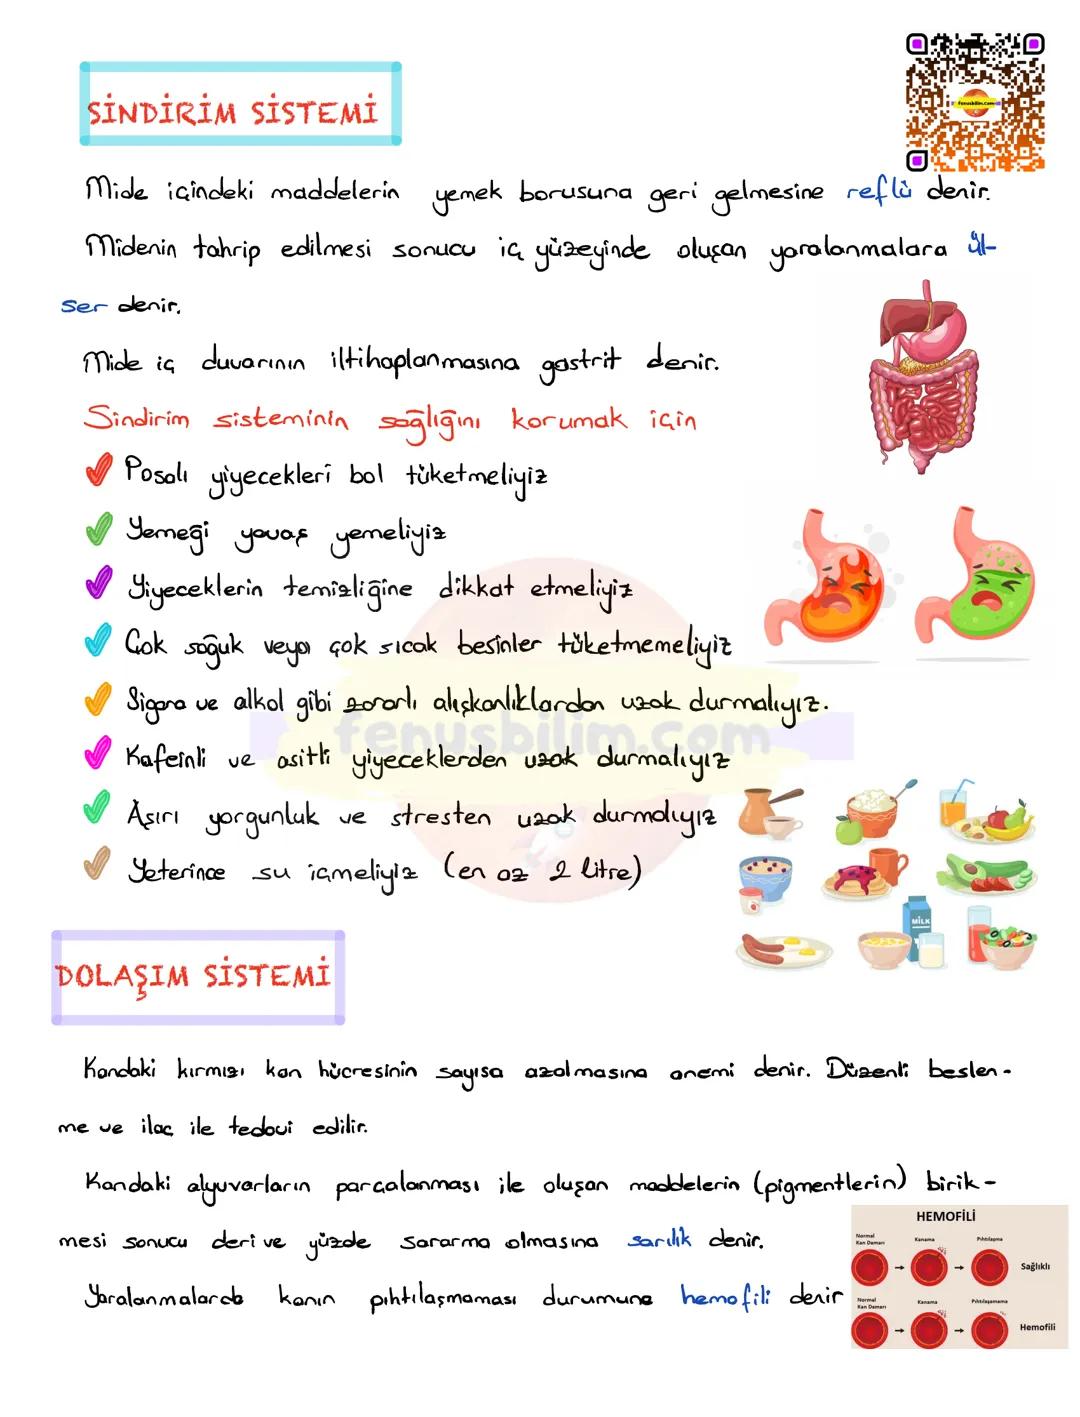 SİNDİRİM SİSTEMİ
fenusbilim.com
Mide içindeki maddelerin yemek borusuna geri gelmesine reflü denir.
Midenin tahrip edilmesi sonucu iç yüzeyinde oluşan yaralanmalara ül-
ser denir.
Mide iç duvarının iltihaplanmasına gastrit denir.
Sindirim sisteminin sağlığını korumak için
Posalı yiyecekleri bol tüketmeliyiz
Yemeği yavaş yemeliyiz
Yiyeceklerin temizliğine dikkat etmeliyiz
Çok soğuk veya çok sıcak besinler tüketmemeliyiz
Sigara ve alkol gibi zararlı alışkanlıklardan uzak durmalıyız.
fenusbilim.com
Kafeinli ve asitli yiyeceklerden uzak durmalıyız
Aşırı yorgunluk ve stresten uzak durmalıyız
Yeterince su içmeliyiz (en az 2 litre)
MILK
DOLAŞIM SİSTEMİ
Kandaki kırmızı kan hücresinin sayısa azalmasına anemi denir. Düzenli beslen-
me ve ilaç ile tedavi edilir.
Kandaki alyuvarların parçalanması ile oluşan maddelerin (pigmentlerin) birik-
mesi sonucu deri ve yüzde sararma olmasına sarılık denir.
Yaralanmalarda kanın pıhtılaşmaması durumuna hemofili denir
HEMOFİLİ
Normal Kanama Pıhtılaşma
Kan Damarı
Sağlıklı
Normal Kanama Pıhtılaşamama
Kan Damarı
Hemofili